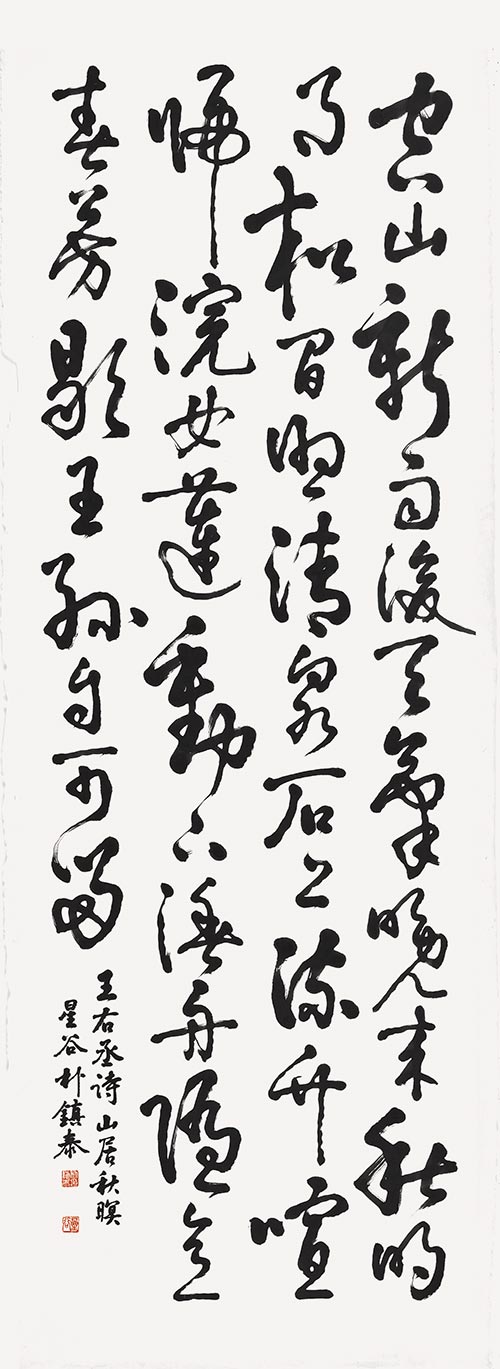 空山新雨後天氣晚來秋明
月松間照清泉石上流竹喧
歸浣女蓮動下漁舟隨意
春芳歇王孫自可留
王右丞詩山居秋暝
星谷朴鎮泰